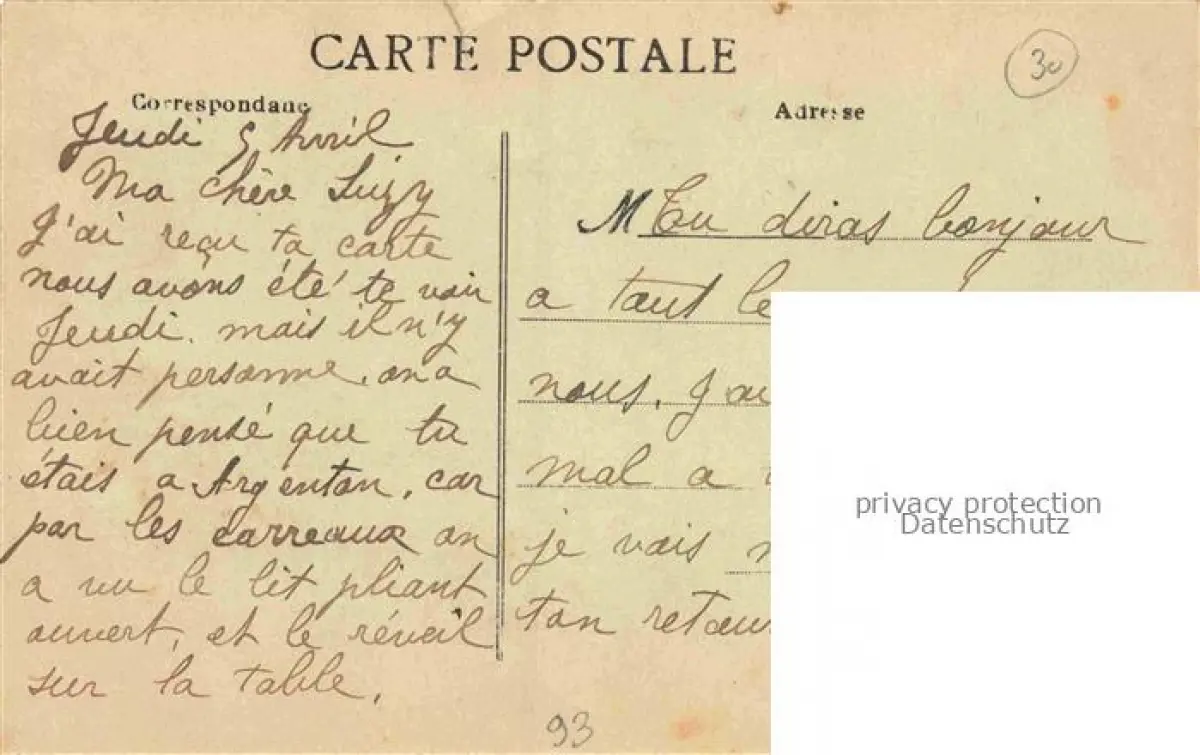 CARTE POSTALE
30
Correspondanc
Adresse
Jeudi 5 Avril
Ma chère Suzy
J'ai reçu ta carte
nous avons été te voir
Jeudi. mais il n'y
avait personne. on a
bien pensé que tu
étais a Argenton. car
par les carreaux on
a vu le lit pliant
ouvert, et le réveil
sur la table.
M Tu diras bonjour
a tout le
nous. J'ai
mal a
je vais
ton retour
privacy protection
Datenschutz
93